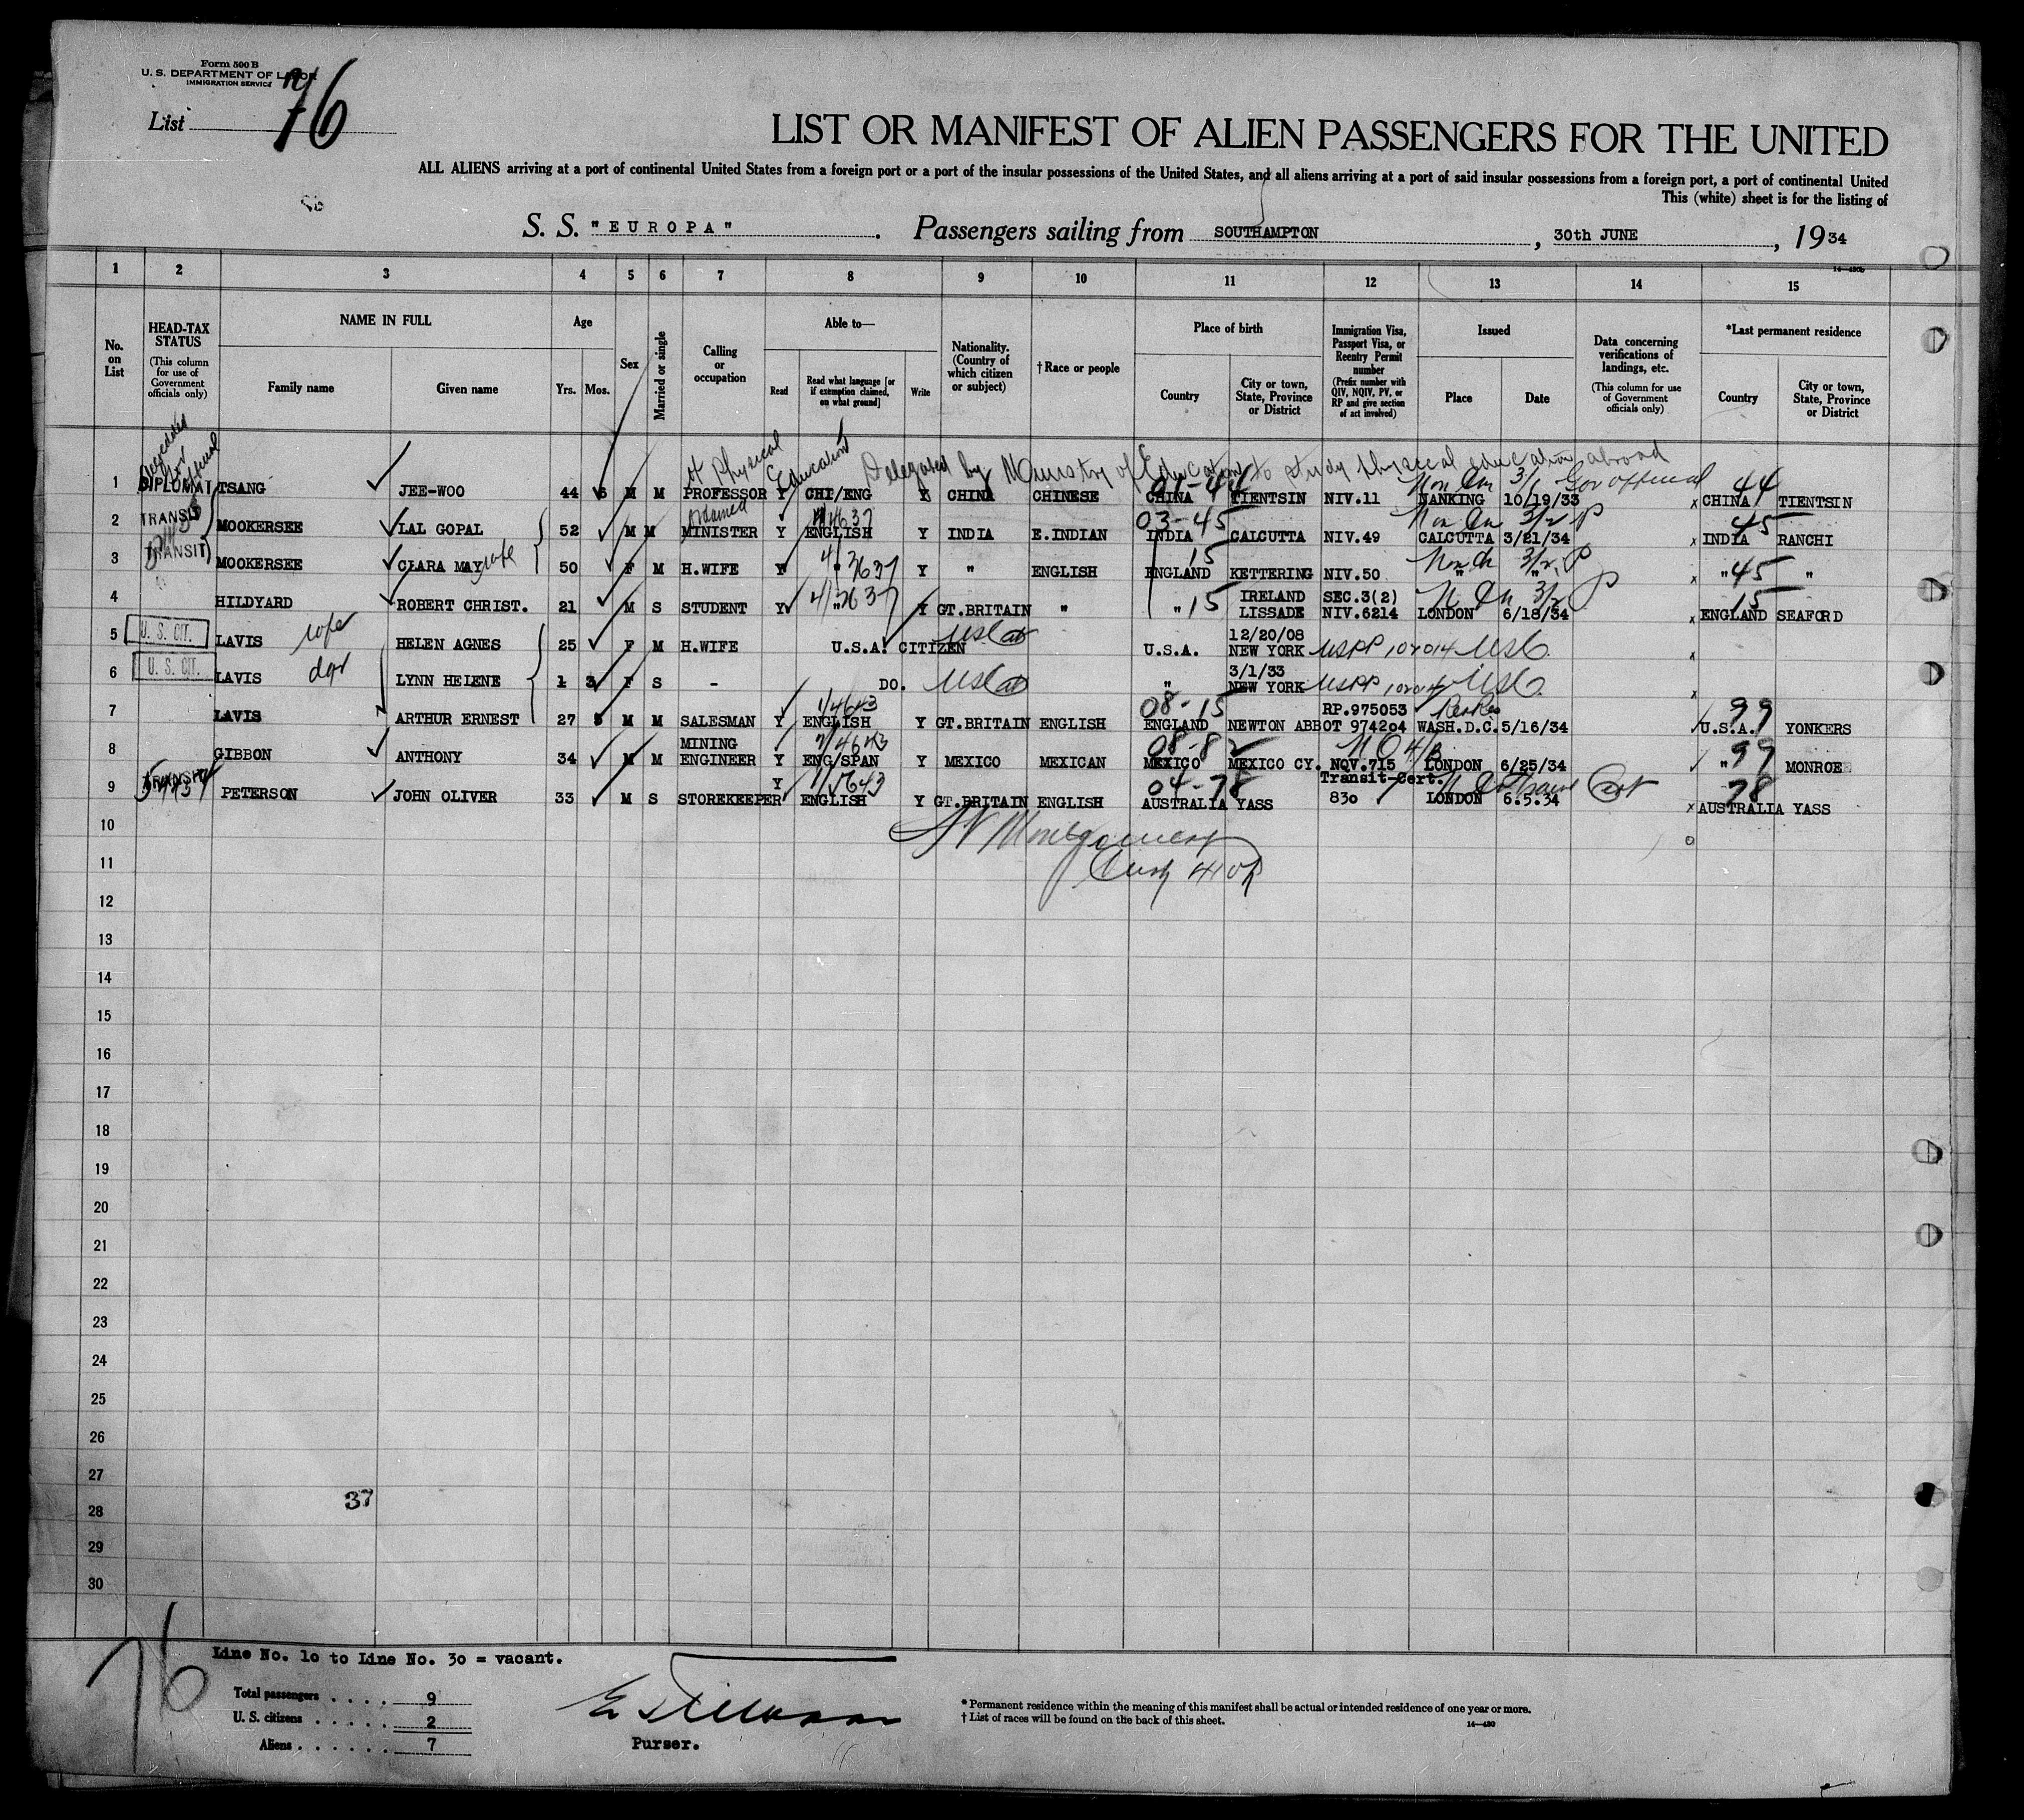 Form 500 B
U. S. DEPARTMENT OF LABOR
IMMIGRATION SERVICE
List 76
LIST OR MANIFEST OF ALIEN PASSENGERS FOR THE UNITED
ALL ALIENS arriving at a port of continental United States from a foreign port or a port of the insular possessions of the United States, and all aliens arriving at a port of said insular possessions from a foreign port, a port of continental United
This (white) sheet is for the listing of
S. S. "EUROPA". Passengers sailing from SOUTHAMPTON, 30th JUNE, 1934
14—480b
1 2 3 4 5 6 7 8 9 10 11 12 13 14 15
No. on List
HEAD-TAX STATUS (This column for use of Government officials only)
NAME IN FULL Family name Given name
Age Yrs. Mos.
Sex
Married or single
Calling or occupation
Able to— Read Read what language [or if exemption claimed, on what ground] Write
Nationality. (Country of which citizen or subject)
†Race or people
Place of birth Country City or town, State, Province or District
Immigration Visa, Passport Visa, or Reentry Permit number (Prefix number with QIV, NQIV, PV, or RP and give section of act involved)
Issued Place Date
Data concerning verifications of landings, etc. (This column for use of Government officials only)
*Last permanent residence Country City or town, State, Province or District
of Physical Education Delegated by Ministry of Education to study physical education abroad
01-44 Non Im 3/1 Gov official 44
1 DIPLOMAT TSANG JEE-WOO 44 6 M M PROFESSOR Y CHI/ENG Y CHINA CHINESE CHINA TIENTSIN NIV.11 NANKING 10/19/33 x CHINA TIENTSIN
03-45 Non Im 3/2 P 45
2 TRANSIT MOOKERSEE LAL GOPAL 52 M M MINISTER Y ENGLISH Y INDIA E.INDIAN INDIA CALCUTTA NIV.49 CALCUTTA 3/21/34 x INDIA RANCHI
15 3/2 P 45
3 TRANSIT MOOKERSEE CLARA MAY wife 50 F M H.WIFE Y " Y " ENGLISH ENGLAND KETTERING NIV.50 " " x " "
15 IRELAND SEC.3(2) 3/2 P 15
4 HILDYARD ROBERT CHRIST. 21 M S STUDENT Y " Y GT.BRITAIN " " LISSADE NIV.6214 LONDON 6/18/34 x ENGLAND SEAFORD
12/20/08
5 U. S. CIT. LAVIS wife HELEN AGNES 25 F M H.WIFE U.S.A. CITIZEN U.S.A. NEW YORK USPP 102014 USC x
3/1/33
6 U. S. CIT. LAVIS dgr LYNN HELENE 1 3 F S - DO. " NEW YORK USPP 102014 USC x
1/4643 08-15 RP.975053 99
7 LAVIS ARTHUR ERNEST 27 8 M M SALESMAN Y ENGLISH Y GT.BRITAIN ENGLISH ENGLAND NEWTON ABBOT 974204 WASH.D.C. 5/16/34 U.S.A. YONKERS
MINING 08-82 99
8 GIBBON ANTHONY 34 M M ENGINEER Y ENG/SPAN Y MEXICO MEXICAN MEXICO MEXICO CY. NQV.715 LONDON 6/25/34 " MONROE
04-78 Transit-Cert. 78
9 TRANSIT PETERSON JOHN OLIVER 33 M S STOREKEEPER Y ENGLISH Y GT.BRITAIN ENGLISH AUSTRALIA YASS 830 LONDON 6.5.34 x AUSTRALIA YASS
10 Montgomery
11
12
13
14
15
16
17
18
19
20
21
22
23
24
25
26
27
28 37
29
30
76
Line No. 10 to Line No. 30 = vacant.
Total passengers . . . . 9
U. S. citizens . . . . . 2
Aliens . . . . . . 7
Purser.
* Permanent residence within the meaning of this manifest shall be actual or intended residence of one year or more.
† List of races will be found on the back of this sheet.
14—480